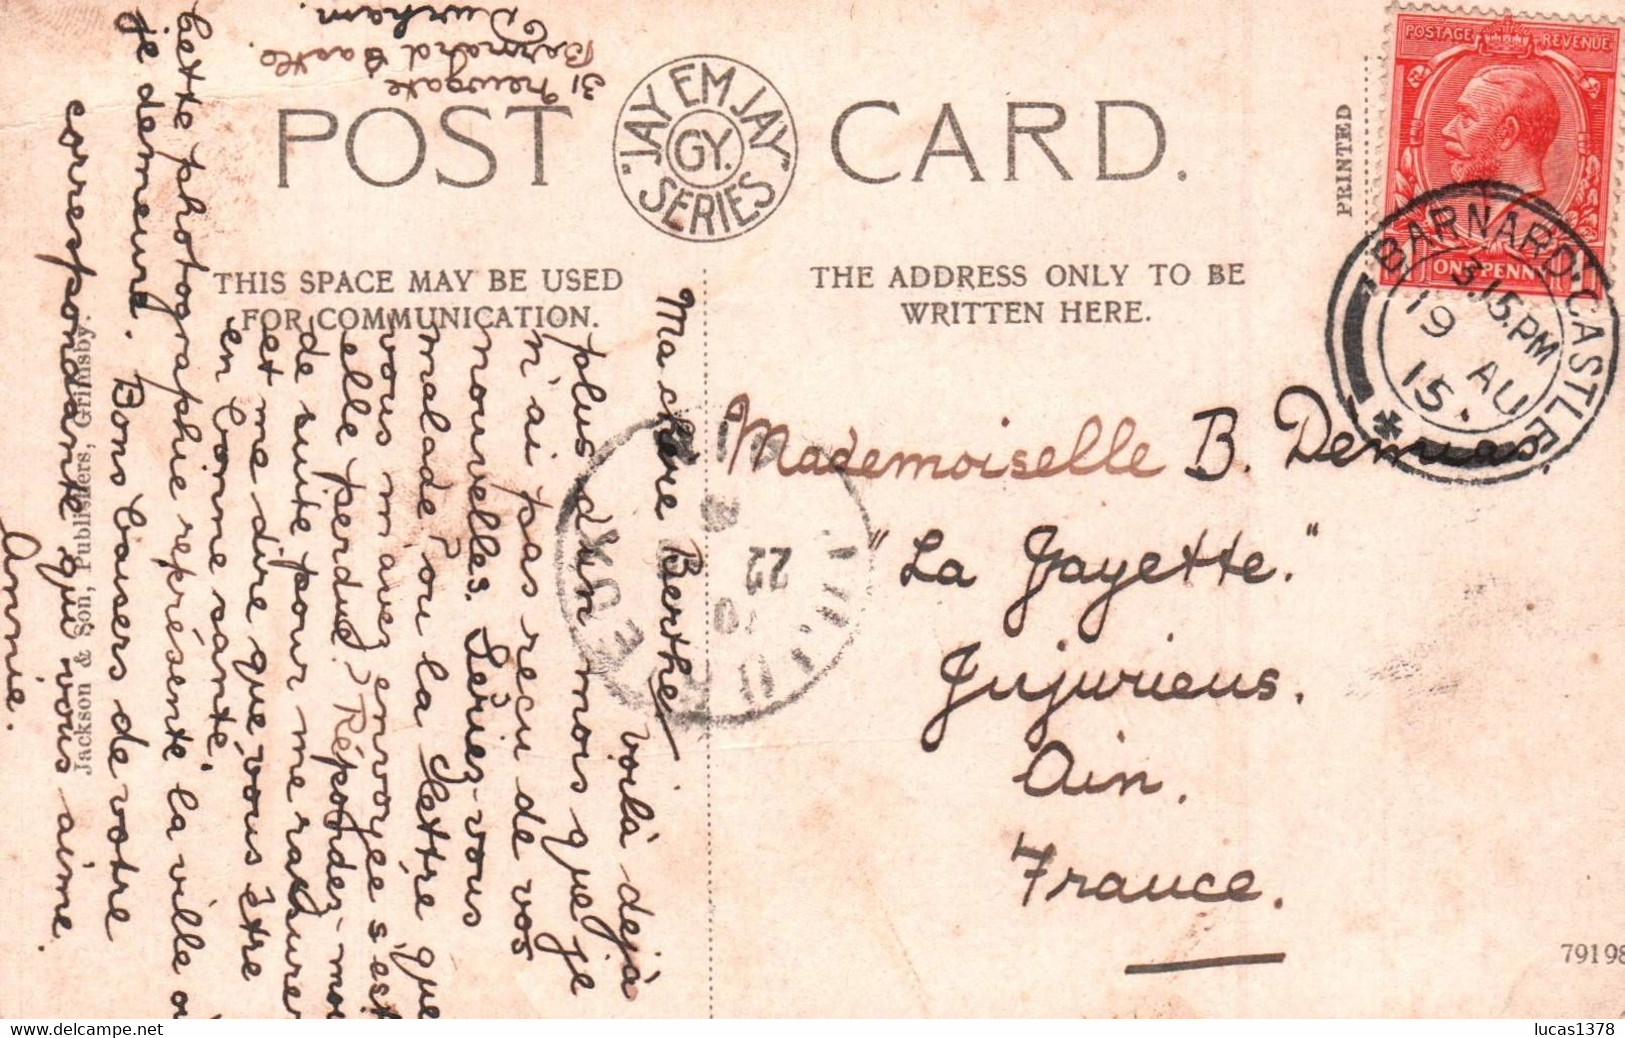 31 Newgate
Barnard Castle.
Durham.
POST CARD.
"JAY EM JAY" SERIES
GY.
THIS SPACE MAY BE USED
FOR COMMUNICATION.
THE ADDRESS ONLY TO BE
WRITTEN HERE.
PRINTED
POSTAGE REVENUE
ONE PENNY
BARNARD·CASTLE
3.15.PM
19 AU
15.
Ma chère Berthe
voilà déjà
plus d'un mois que je
n'ai pas reçu de vos
nouvelles. Seriez-vous
malade? ou la lettre que
vous m'avez envoyée s'est
elle perdue? Répondez-moi
de suite pour me rassurer
et me dire que vous être
en bonne santé.
Cette photographie représente la ville où
je demeure. Bons baisers de votre
correspondante qui vous aime.
Annie.
Mademoiselle B.
"La Fayette."
Jujurieus.
Ain.
France.
22
EUX
Jackson & Son, Publishers, Grimsby.
79198
lucas1378